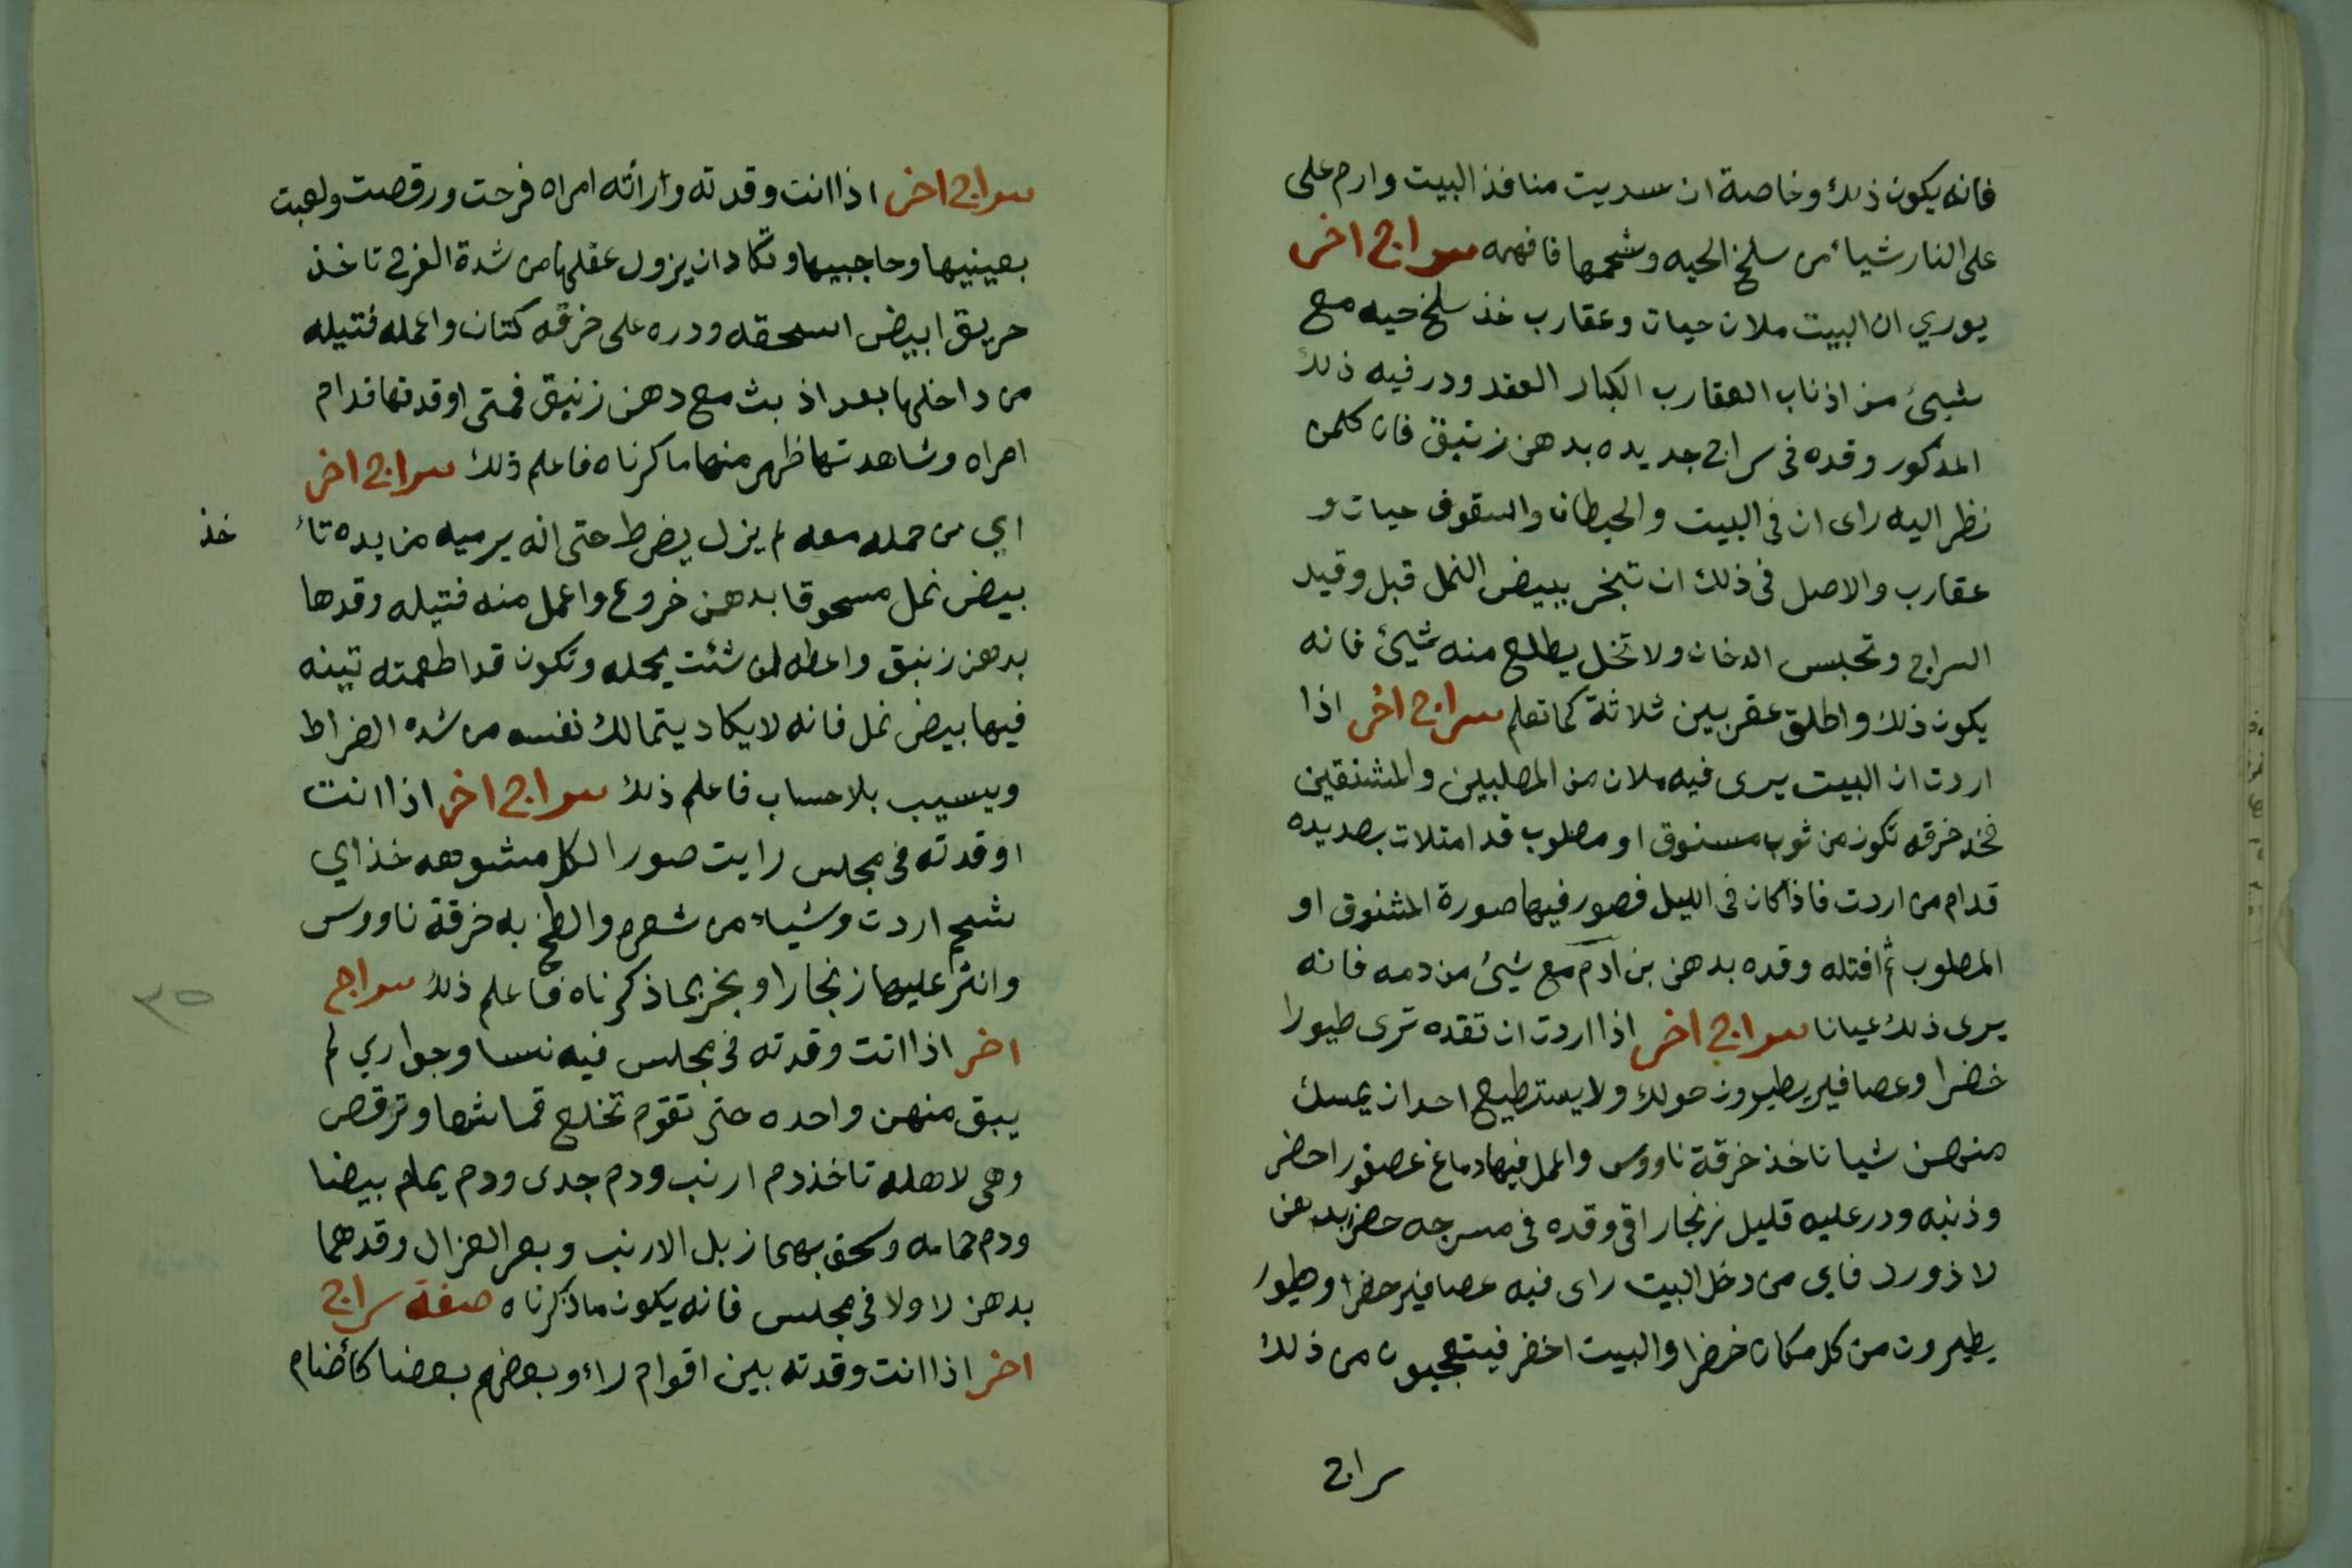 فانه يكون ذلك وخاصة ان سديت منافذ البيت وارم على
على النار شياء من سلخ الحيه وشحمها فافهمه سراج اخر
يوري ان البيت ملان حيات وعقارب خذ سلخ حيه مع
شيئ من اذناب العقارب الكبار العقد ودر فيه ذلك
المدكور وقده فى سراج جديده بدهن زنبق فان كلمن
نظر اليه راى ان في البيت والحيطان والسقوف حيات و
عقارب والاصل فى ذلك ان تبخر ببيض النمل قبل وقيد
السراج وتحبس الدخان ولا تخل يطلع منه شيئ فانه
يكون ذلك واطلق عقربين ثلاثة كما تعلم سراج اخر اذا
اردت ان البيت يرى فيه ملان من المصلبين والمشنقين
فخد خرقه تكون من ثوب مسنوق او مصلوب قد امتلات بصديده
قدام من اردت فاذا كان فى الليل فصور فيها صورة المشنوق او
المصلوب ثم افتله وقده بدهن بن ادم مع شيئ من دمه فانه
يرى ذلك عيانا سراج اخر اذا اردت ان تقده ترى طيورا
خضرا وعصافير يطيرون حولك ولا يستطيع احد ان يمسك
منهن شيا تاخذ خرقة ناووس واعمل فيها دماغ عصفور احضر
وذنبه ودر عليه قليل زنجار اقى وقده فى مسرجه حضر بدهن
لاذورد فاي من دخل البيت راى فيه عصافير حضرا وطيور
يطيرون من كل مكان خرضا والبيت اخضر فيتعجبون من ذلك
سراج
سراج اخر اذا انت وقدته وارأته امراه فرحت ورقصت ولعبت
بعينيها وحاجبيها وتكاد ان يزول عقلها من شدة الفرح تاخذ
حريق ابيض اسحقه ودره على خرقه كتان واعمله فتيله
من داخلها بعد اذ بث مع دهن زنبق فمتى اوقدتها قدام
امراه وشاهدتها ظهر منها ما كرناه فاعلم ذلك سراج اخر
اي من حمله معه لم يزل يضرط حتى انه يرميه من يده تا خذ
بيض نمل مسحوقا بدهن خروع واعمل منه فتيله وقدها
بدهن زنبق واعطه لمن شئت يحمله وتكون قد اطعمته تينه
فيها بيض نمل فانه لا يكاد يتمالك نفسه من شده الضراط
ويسيب بلا حساب فاعلم ذلك سراج اخر اذا انت
اوقدته فى مجلس رايت صور الكل مشوهه خذ اي
شحم اردت وشياء من شعره والطخ به خرقة ناووس
وانثر عليها زنجارا وبخر بما ذكرناه فاعلم ذلك سراج
اخر اذا انت وقدته فى مجلس فيه نسا وجواري لم
يبق منهن واحده حتى تقوم تخلع قماشها وترقص
وهى لاهله تاخذ دم ارنب ودم جدى ودم يمام بيضا
ودم حمامه وسحق بهما زبل الارنب وبعر الغزال وقدهما
بدهن لاولا فى مجلس فانه يكون ماذكرناه صفة سراج
اخر اذا انت وقدته بين اقوام راءو بعضهم بعضا كأضنام
٣٥